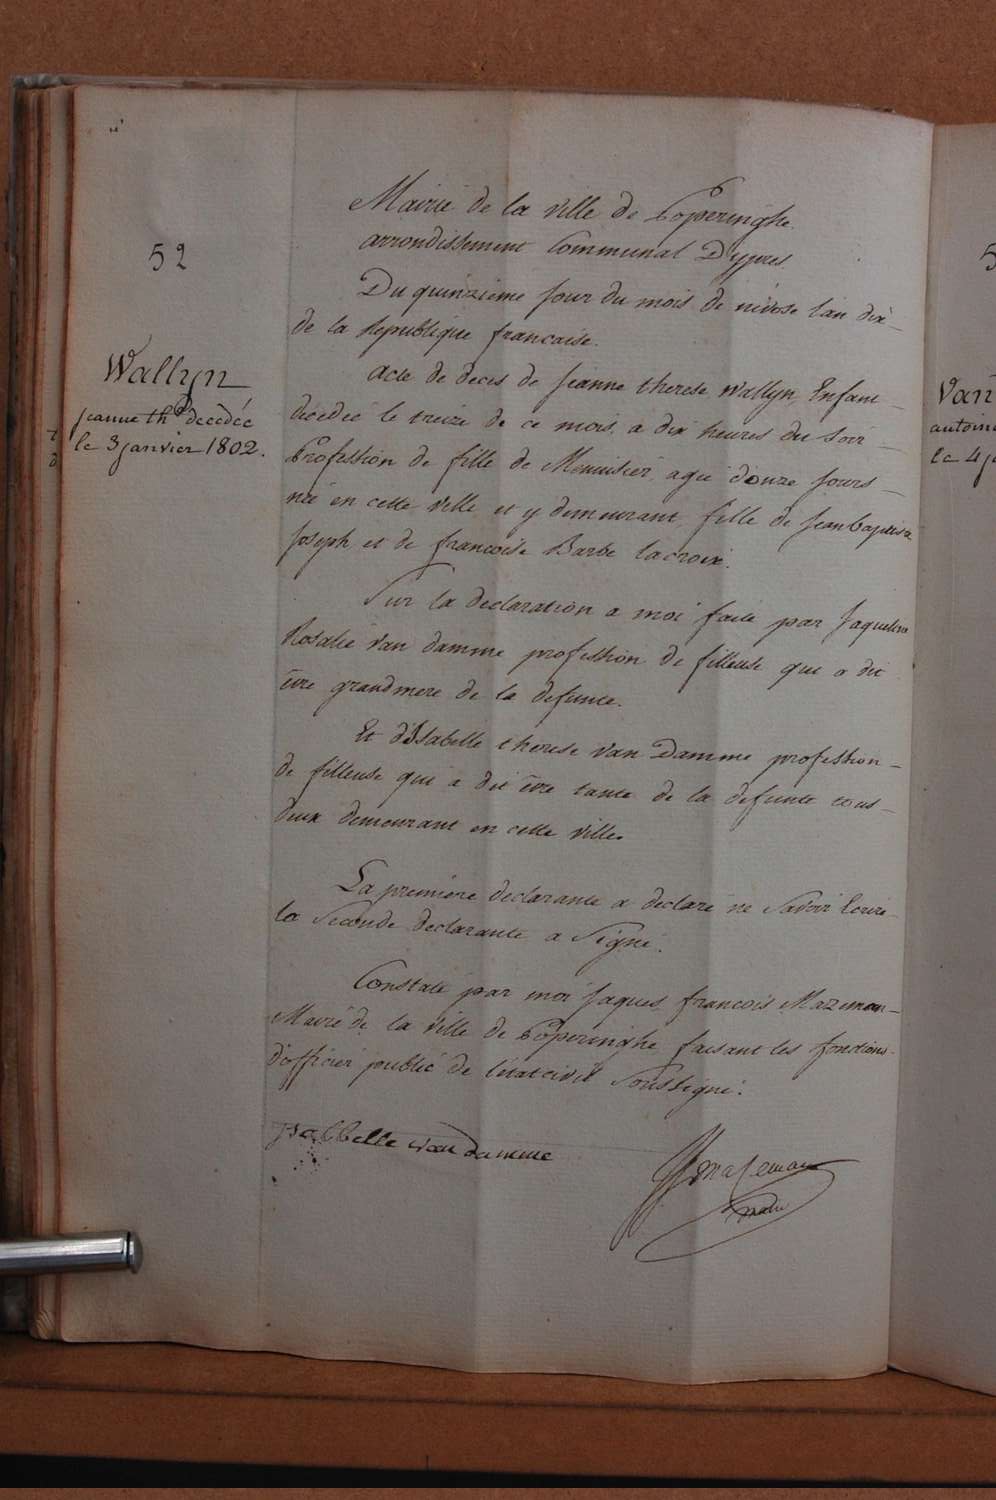 52
Wallyn
jeanne th decedée
le 3 janvier 1802.
Mairie de la ville de Poperinghe
arrondissement Communal D'ypres
Du quinzieme jour du mois de nivose l'an dix
de la Republique francaise.
acte de deces de jeanne therese wallyn, Enfant
decedée le treize de ce mois, a dix heures du Soir
Profession de fille de Menuisier, agée douze jours
née en cette ville et y demeurant, fille de jean baptiste
joseph et de francoise Barbe lacroix.
Sur la declaration a moi faite par jaqueline
Rosalie van damme profession de filleuse qui a dit
être grandmere de la defunte.
Et d'Isabelle therese van Damme profession
de filleuse qui a dit être tante de la defunte tous
deux demeurant en cette ville.
La premiere declarante a declaré ne Savoir Ecrire
la Seconde declarante a Signé.
Constaté par moi jaques francois Mazeman
Maire de la ville de Poperinghe faisant les fonctions
d'officier public de l'état civil Soussigné.
isabbelle van damme
JJ Mazeman
maire
Van
antoin
le 4 j
5